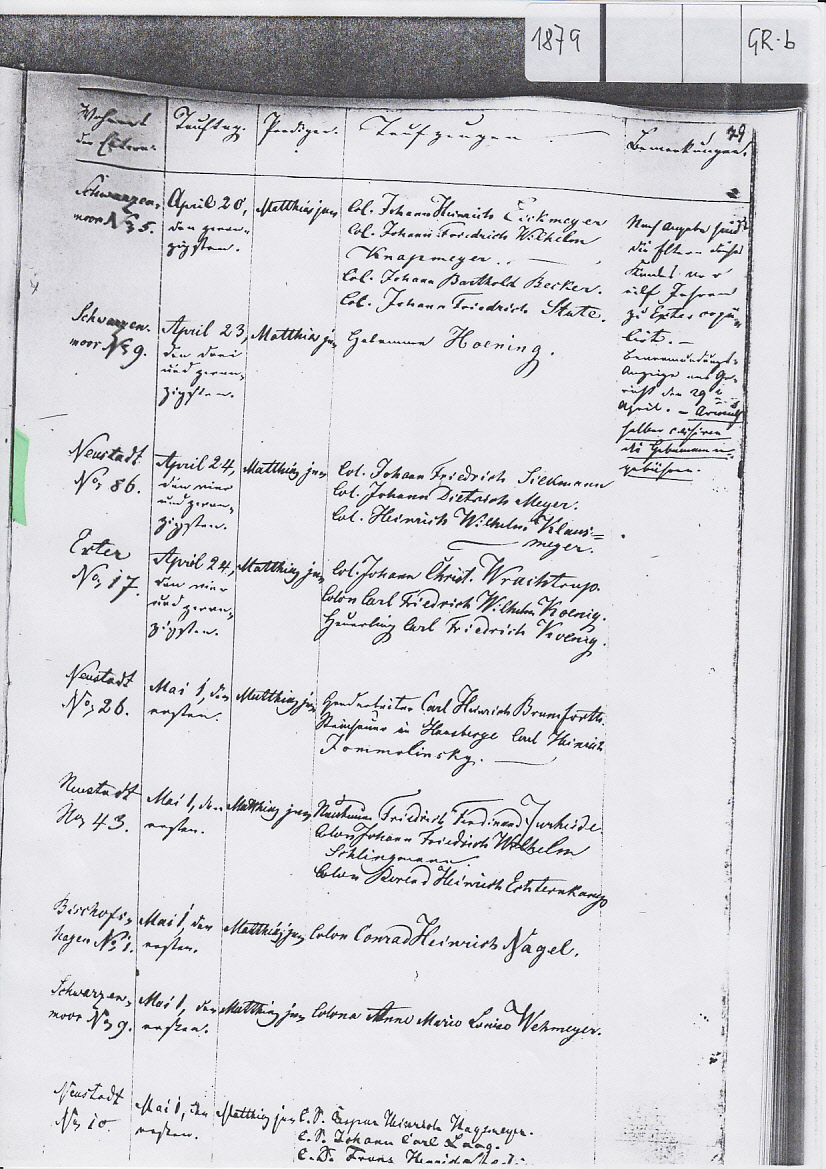 1879
GR-b
79
Wohnort der Eltern.
Tauftag.
Prediger.
Taufzeugen
Bemerkungen.
Schwarzen-
moor No 5.
April 20,
den zwan-
zigsten.
Matthias jun
Col. Johann Heinrich Eickmeyer
Col. Johann Friedrich Wilhelm
Knapmeyer.
Col. Johann Barthold Becker.
Col. Johann Friedrich Stute.
Nach Angabe sind
die Eltern dieses
Kindes vor
elf Jahren
zu Exter copu-
lirt. —
Bevormundungs-
Anzeige ans Ge-
richt den 29
April. —
Schwarzen-
moor No 9.
April 23,
den drei
und zwan-
zigsten.
Matthias jun
Hebamme Hoening.
Neustadt
No 86.
April 24,
den vier
und zwan-
zigsten.
Matthias jun
Col. Johann Friedrich Siekmann
Col. Johann Dietrich Meyer.
Col. Heinrich Wilhelm Klaus=
meyer.
Exter
No 17.
April 24,
den vier
und zwan-
zigsten.
Matthias jun
Col. Johann Christ. Wrachtrup.
Colon Carl Friedrich Wilhelm Koenig.
Heuerling Carl Friedrich Koenig.
Neustadt
No 26.
Mai 1, den
ersten.
Matthias jun
Carl Heinrich Brumforth
Steinhauer in Hausberge Carl Heinrich
Jommolinsky.
Neustadt
No 43.
Mai 1, den
ersten.
Matthias jun
Neubauer Friedrich Ferdinand Jurheide
Colon Johann Friedrich Wilhelm
Schlingmann
Colon Berend Heinrich Echternkamp
Bischofs-
hagen No 1.
Mai 1, den
ersten.
Matthias jun
Colon Conrad Heinrich Nagel.
Schwarzen-
moor No 9.
Mai 1, den
ersten.
Matthias jun
Colona Anne Marie Louise Wehmeyer.
Neustadt
No 10.
Mai 1, den
ersten.
Matthias jun
C. S. Caspar Heinrich Hagemeyer.
C. S. Johann Carl Laag.
C. D. Franz